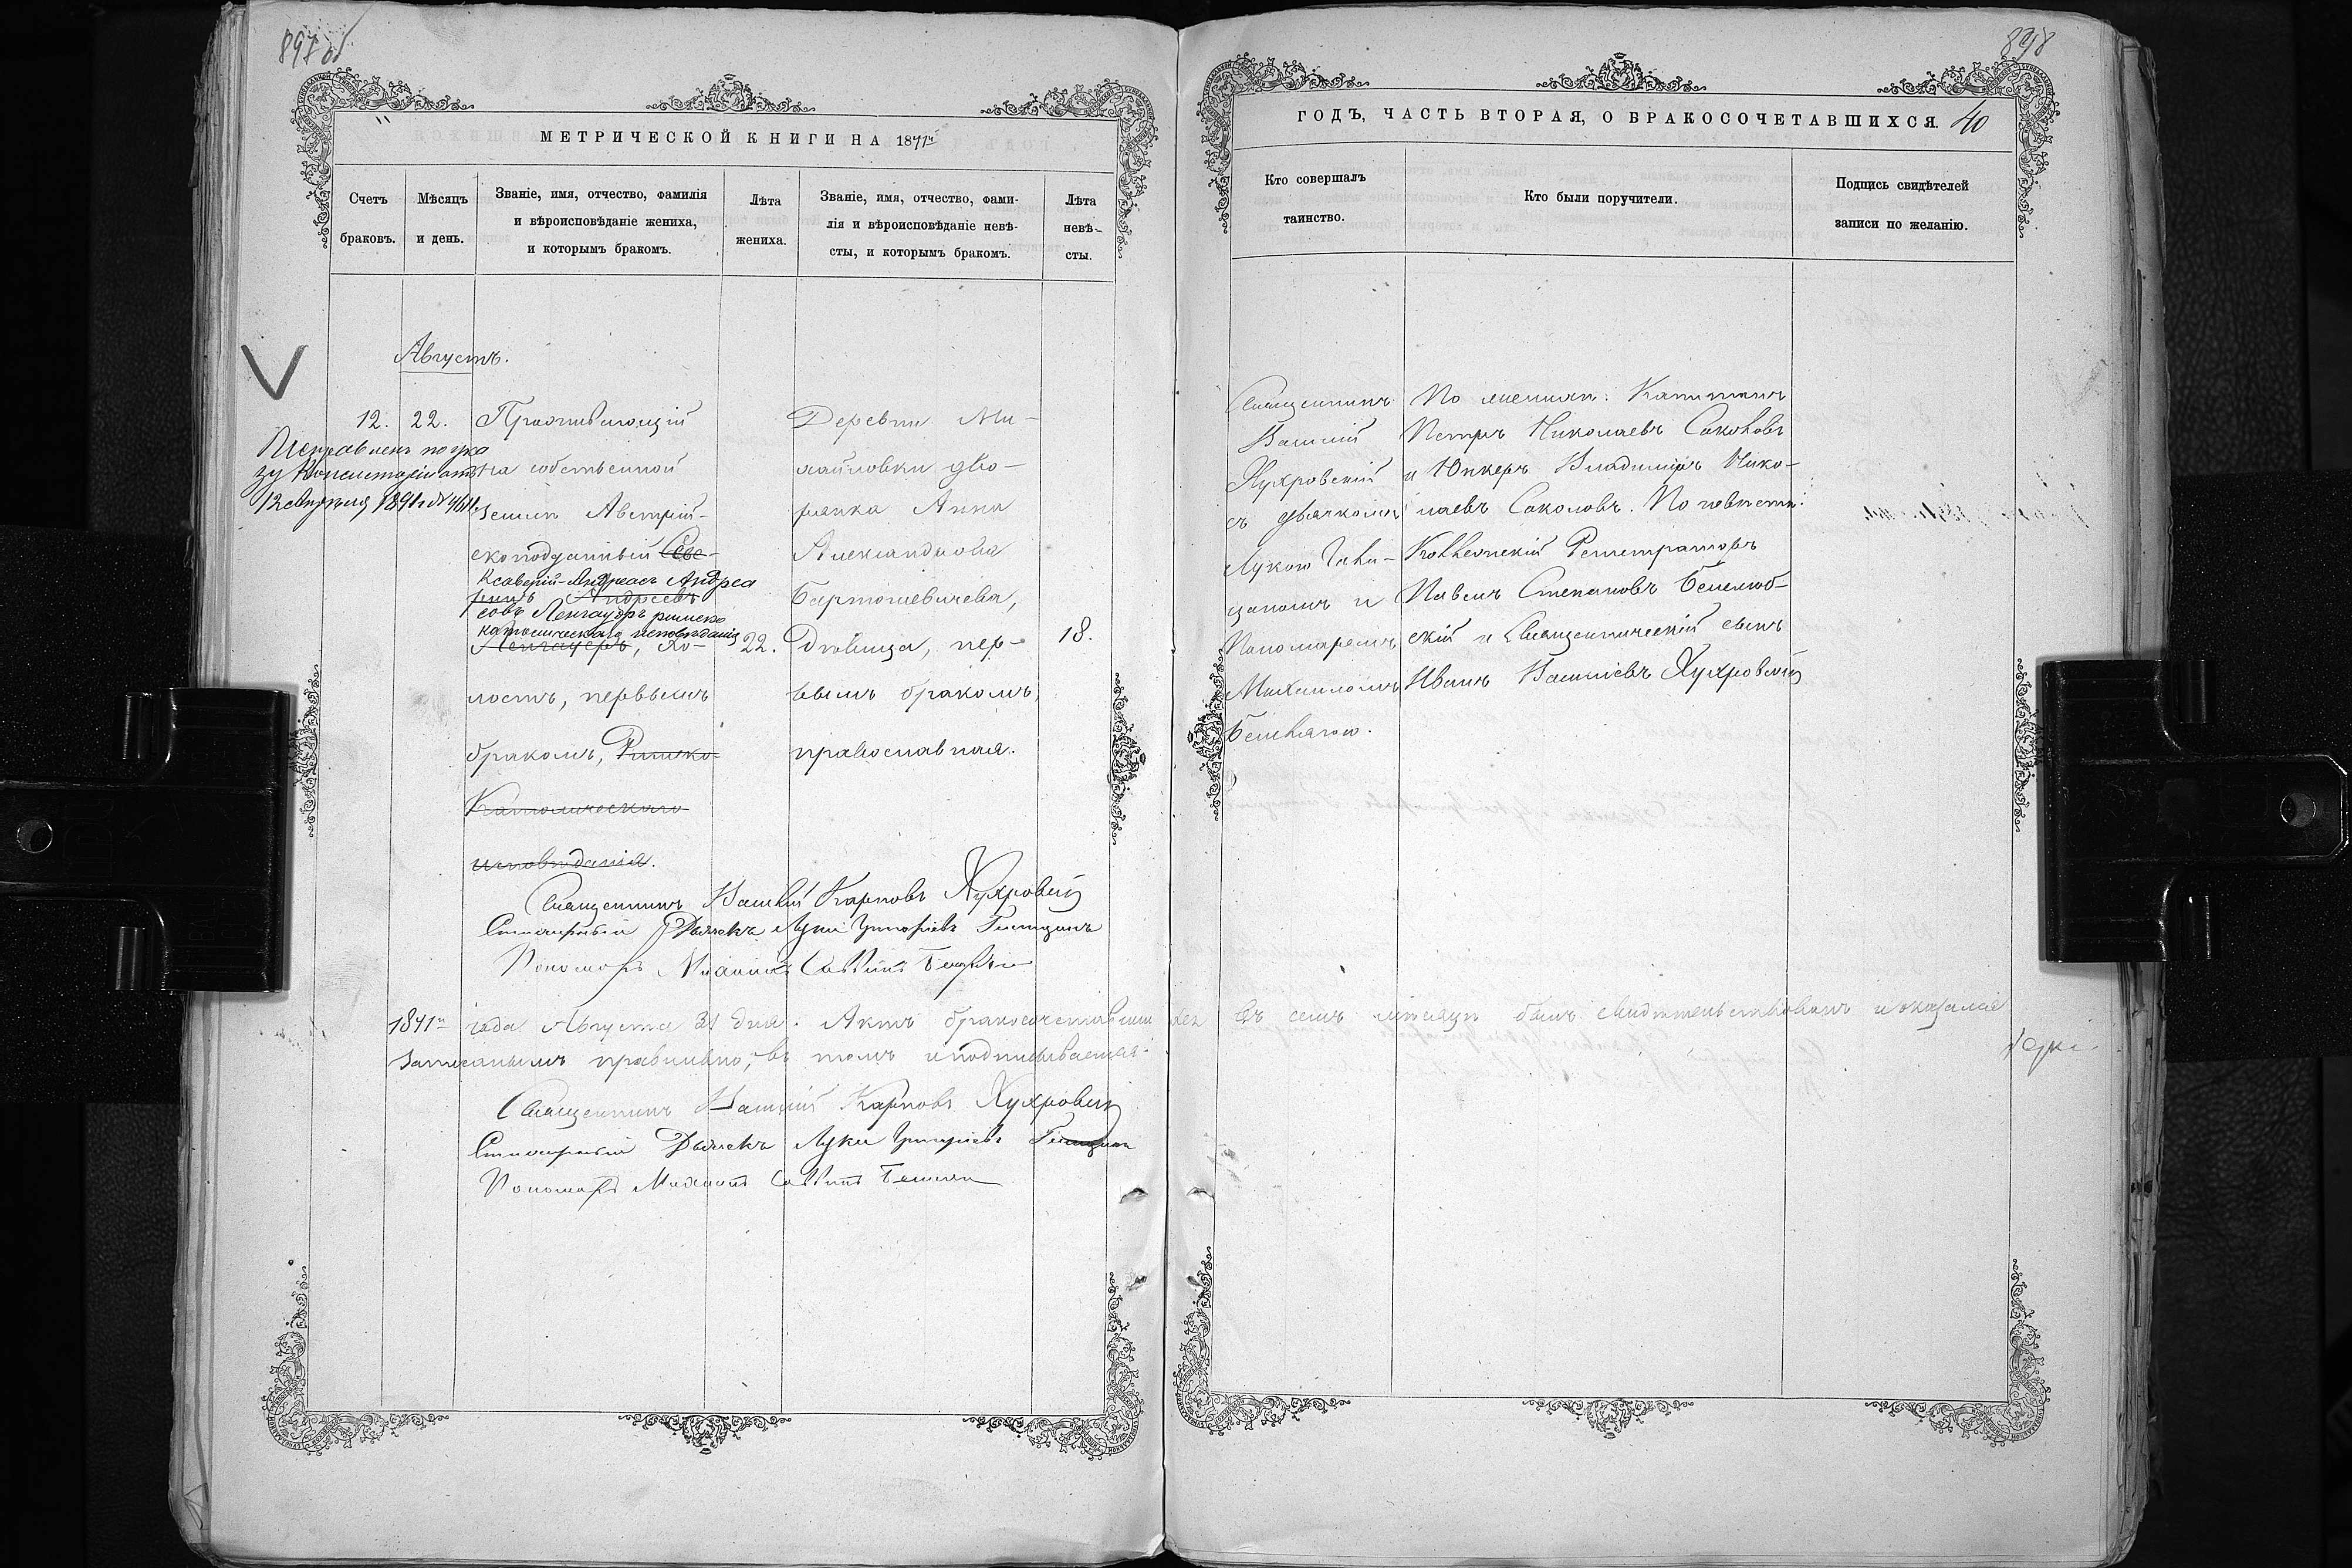 897 об
МЕТРИЧЕСКОЙ КНИГИ НА 1871й
Счетъ браковъ.
Мѣсяцъ и день.
Званіе, имя, отчество, фамилія
и вѣроисповѣданіе жениха,
и которымъ бракомъ.
Лѣта
жениха.
Званіе, имя, отчество, фами-
лія и вѣроисповѣданіе невѣ-
сты, и которымъ бракомъ.
Лѣта
невѣ-
сты.
Августъ.
12.
22.
Исправленъ по ука
зу Консисторіи отъ
12 1891 г. №
Проживающій
на собственной
земли Австрій-
скоподданный Ксаве-
Ксаверій-Андреасъ Андреа
рій Андреевъ
совъ Ленгауеръ римско
католическаго исповѣданія
Ленгауеръ, хо-
лостъ, первымъ
бракомъ, Римско-
Католическаго
исповѣданія.
22.
Деревни Ми-
хайловки дво-
рянка Анна
Александрова
Бартошевичева,
дѣвица, пер-
вымъ бракомъ,
православная.
18.
Священникъ Василій Карповъ Хухровскій
Дьячекъ Лука Григоріевъ
Пономарь Михаилъ Саввинъ
1871й года Августа 31 дня. Актъ бракосочетавшихся въ семъ мѣсяцѣ былъ свидѣтельствованъ и оказался
записанымъ правильно, въ томъ и подписываемся.
Священникъ Василій Карповъ Хухровскій
Дьячекъ Лука Григоріевъ
Пономарь Михаилъ Саввинъ
898
ГОДЪ, ЧАСТЬ ВТОРАЯ, О БРАКОСОЧЕТАВШИХСЯ. 40
Кто совершалъ
таинство.
Кто были поручители.
Подпись свидѣтелей
записи по желанію.
Священникъ
Василій
Хухровскій
съ дьячкомъ
Лукою
и
Пономаремъ
Михаиломъ
По женихѣ: Капитанъ
Петръ Николаевъ Соколовъ
и Юнкеръ Владиміръ Нико-
лаевъ Соколовъ. По невѣстѣ:
Коллежскій Регистраторъ
Павелъ Степановъ Белелюб-
скій и Священническій сынъ
Иванъ Василіевъ Хухровскій